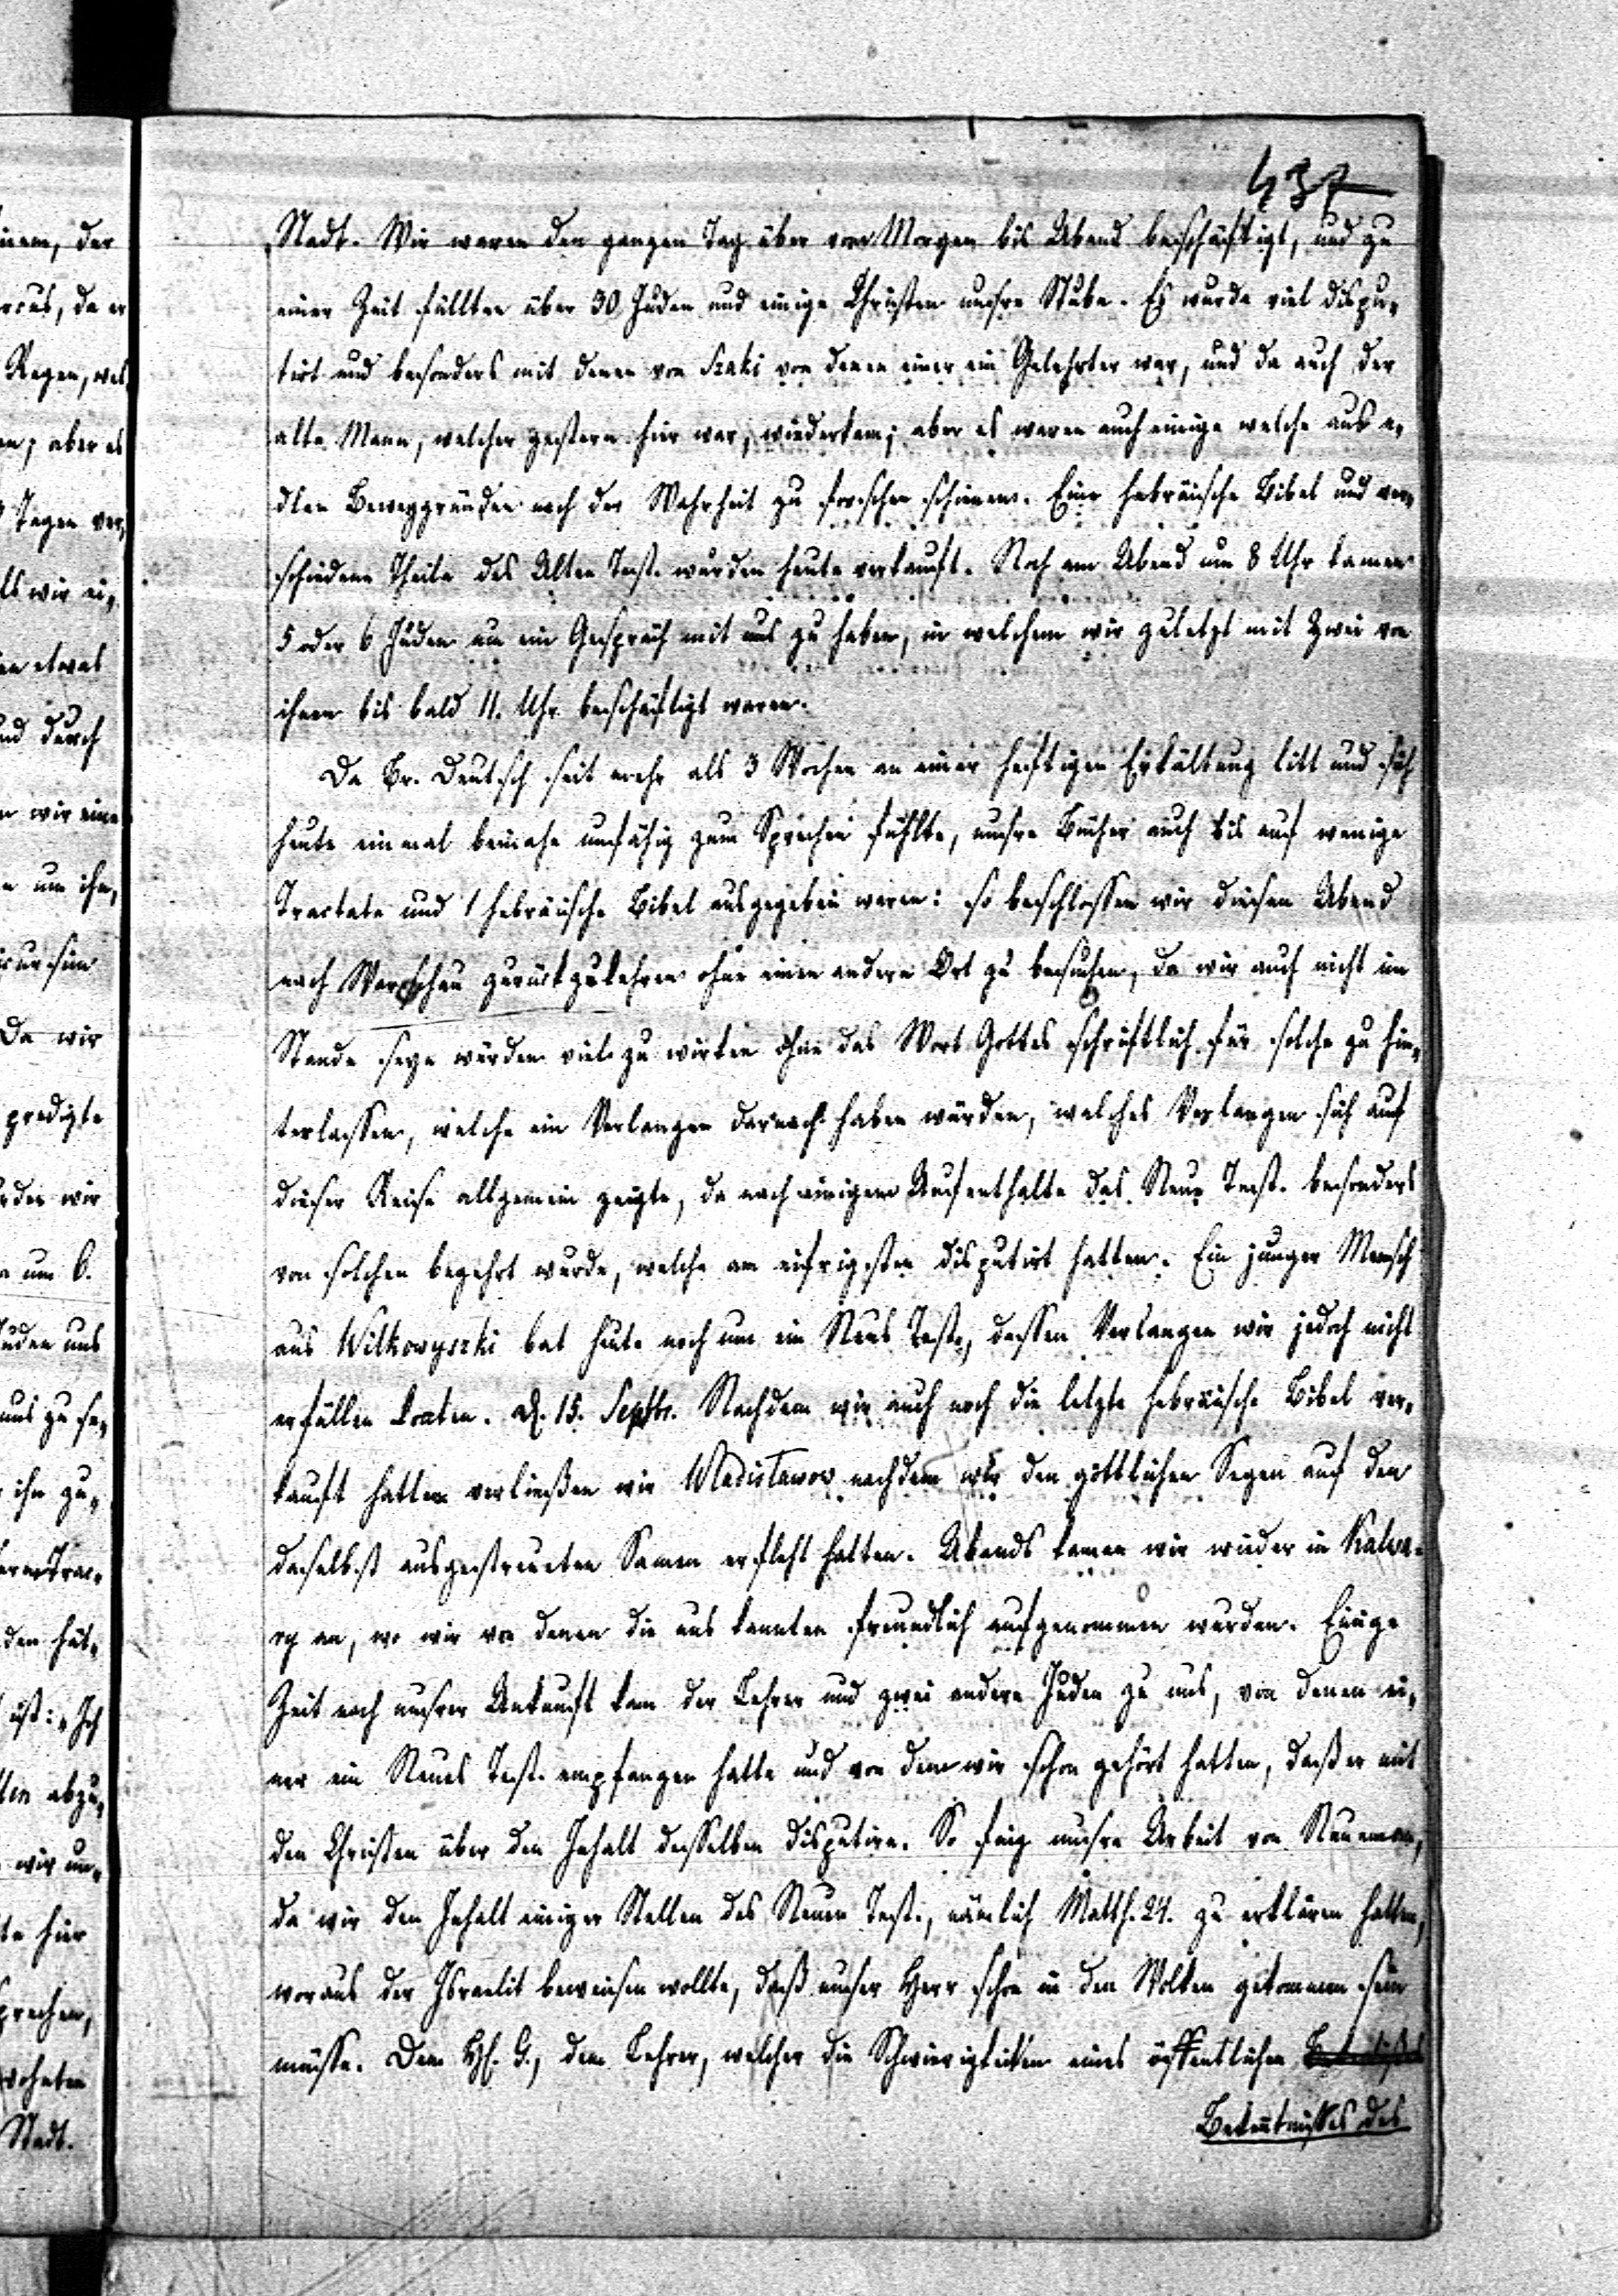 437
Stadt. Wir waren den ganzen Tag über vom Morgen bis Abend beschäftigt, und zu
einer Zeit füllten über 30 Juden und einige Christen unsre Stube. Es wurde viel dispu-
tirt und besonders mit denen von Szaki von denen einer ein Gelehrter war, und da auch der
alte Mann, welcher gestern hier war, wiederkam; aber es waren auch einige welche aus e-
dlen Beweggründen nach der Wahrheit zu forschen schienen. Eine hebräische Bibel und ver-
schiedene Theile des Alten Test. wurden heute verkauft. Noch am Abend um 8 Uhr kamen
5 oder 6 Juden um ein Gespräch mit uns zu haben, in welchem wir zuletzt mit Zwei von
ihnen bis bald 11. Uhr beschäftigt waren.
Da Br. Deutsch seit mehr als 3 Wochen an einer heftigen Erkältung litt und sich
heute einmal beinahe unfähig zum Sprechen fühlte, unsre Bücher auch bis auf wenige
Tractate und 1 hebräische Bibel ausgegeben waren: so beschlossen wir diesen Abend
nach Warschau zurückzukehren ohne einen andern Ort zu besuchen, da wir auch nicht im
Stande seyn würden viel zu wirken ohne das Wort Gottes schriftlich für solche zu hin-
terlassen, welche ein Verlangen darnach haben würden, welches Verlangen sich auf
dieser Reise allgemein zeigte, da nach einigem Aufenthalte das Neue Test. besonders
von solchen begehrt wurde, welche am eifrigsten disputirt hatten. Ein junger Mensch
aus Wilkowyszki bat heute noch um ein Neues Test., dessen Verlangen wir jedoch nicht
erfüllen konten. D. 15. Septbr. Nachdem wir auch noch die letzte hebräische Bibel ver-
kauft hatten verließen wir Wladislawow nachdem wir den göttlichen Segen auf den
daselbst ausgestreuten Samen erfleht hatten. Abends kamen wir wieder in Kalwa-
ry an, wo wir von denen die uns kannten freundlich aufgenommen wurden. Einige
Zeit nach unsrer Ankunft kam der Lehrer und zwei andere Juden zu uns, von denen ei-
ner ein Neues Test. empfangen hatte und von dem wir schon gehört hatten, daß er mit
den Christen über den Inhalt desselben disputire. So fing unsre Arbeit von Neuem an,
da wir den Inhalt einiger Stellen des Neuen Test., nämlich Matth. 24. zu erklären hatten,
woraus der Israelit beweisen wollte, daß unser Herr schon in den Wolken gekommen sein
müsse. Dem H. G., dem Lehrer, welcher die Schwierigkeiten eines öffentlichen
Bekentnisses des